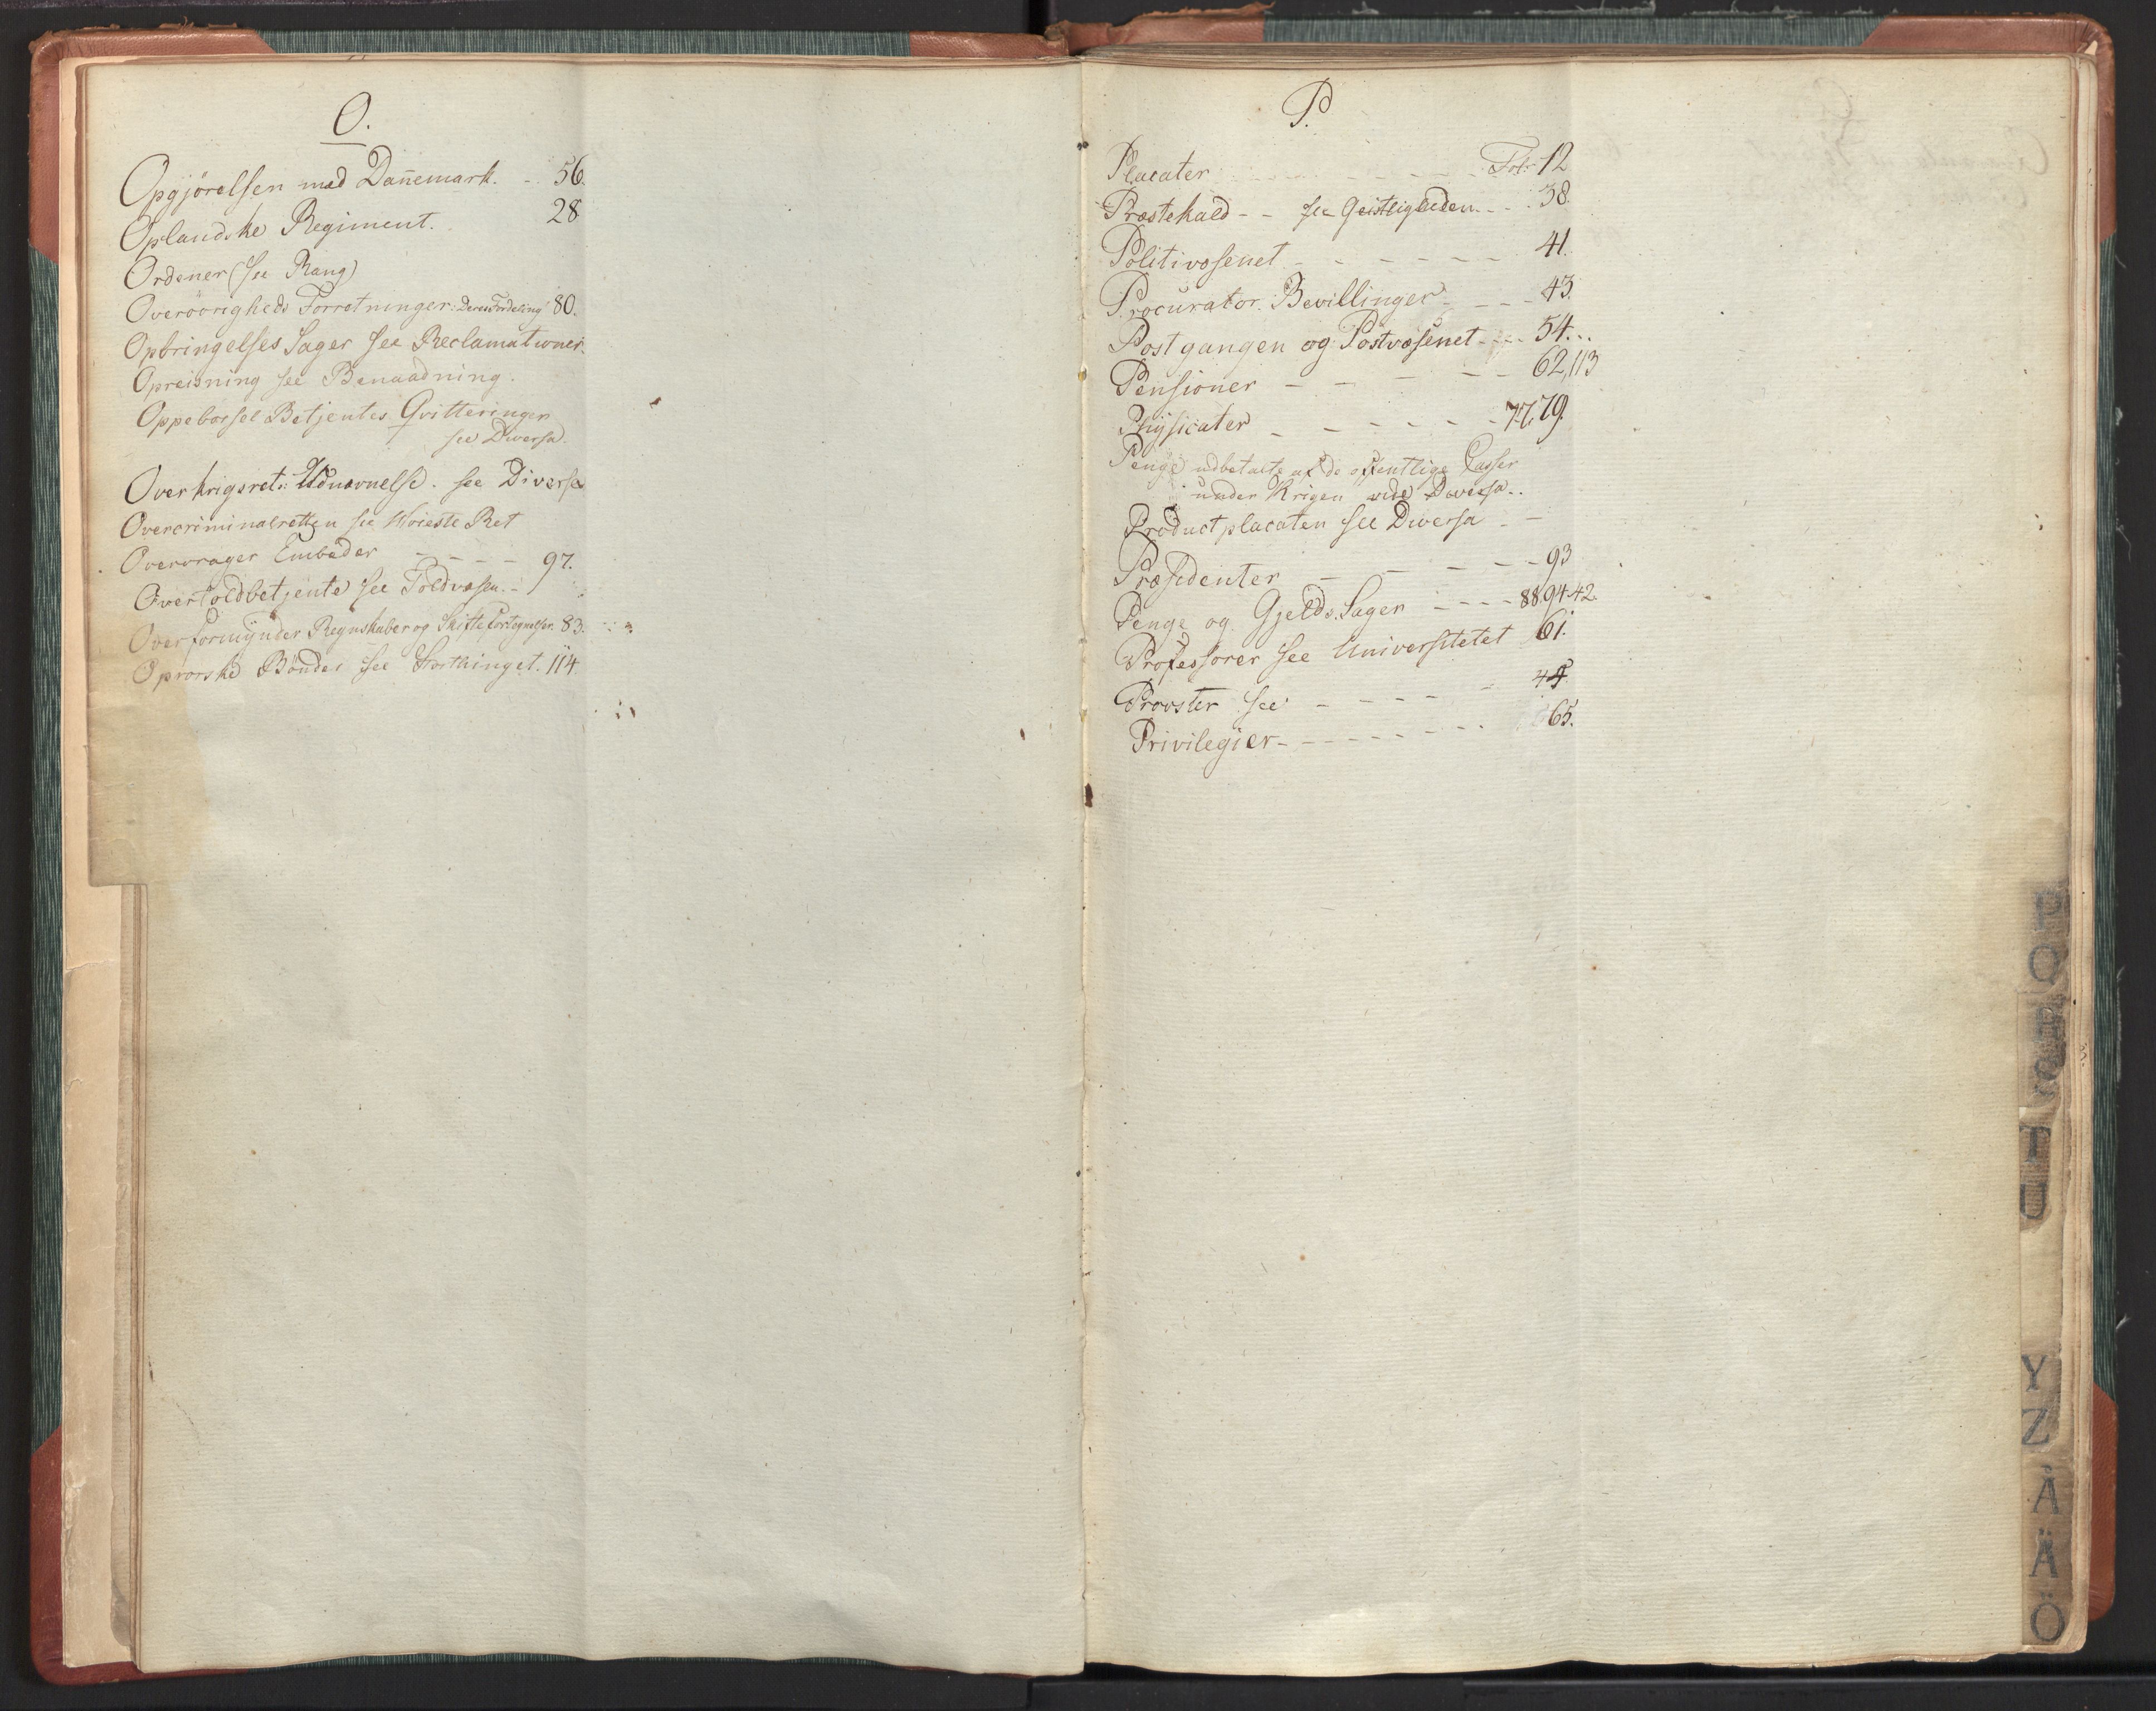 O.
Opgjörelsen med Dan̄emark. - . 56.
Oplandske Regiment. 28
Ordener (see Rang)
Overövrigheds Forretninger: Deres Fordeling 80.
Opbringelses Sager see Reclamationer.
Opreisning see Benaadning.
Oppebørsel Betjentes Qvitteringer
see Diversa.
Overkrigsret: Udnævnelse. see Diversa
Overcriminalretten see Høieste Ret
Overvrager Embeder - - - - 97.
Overtoldbetjente see Toldvæsen. -
Overformÿnder Regnskaber og Skifte Fortegnelser. 83.
Oprørske Bönder see Storthinget. 114.
P.
Placater - - - - - Fol: 12
Præstekald - - see Geistligheden - - . 38.
Politivæsenet - - - - - - 41.
Procurator. Bevillinger - - - 43.
Postgangen og Postvæsenet - - - 54...
Pensioner - - - - - 62,113
Phÿsicater - - - - - - 77,79.
Penge udbetalte af de offentlige Casser
under Krigen vide Diversa..
Productplacaten see Diversa - -
Præsidenter - - - - - - 93
Penge og Gjelds. Sager - - - - 88.94.42.
Professorer see Universitetet 61.
Provster see - - - - - 44.
Privilegier - - - - - - - - 65.
P
Q
R
S
T
U
Y
Z
Å
Ä
Ö